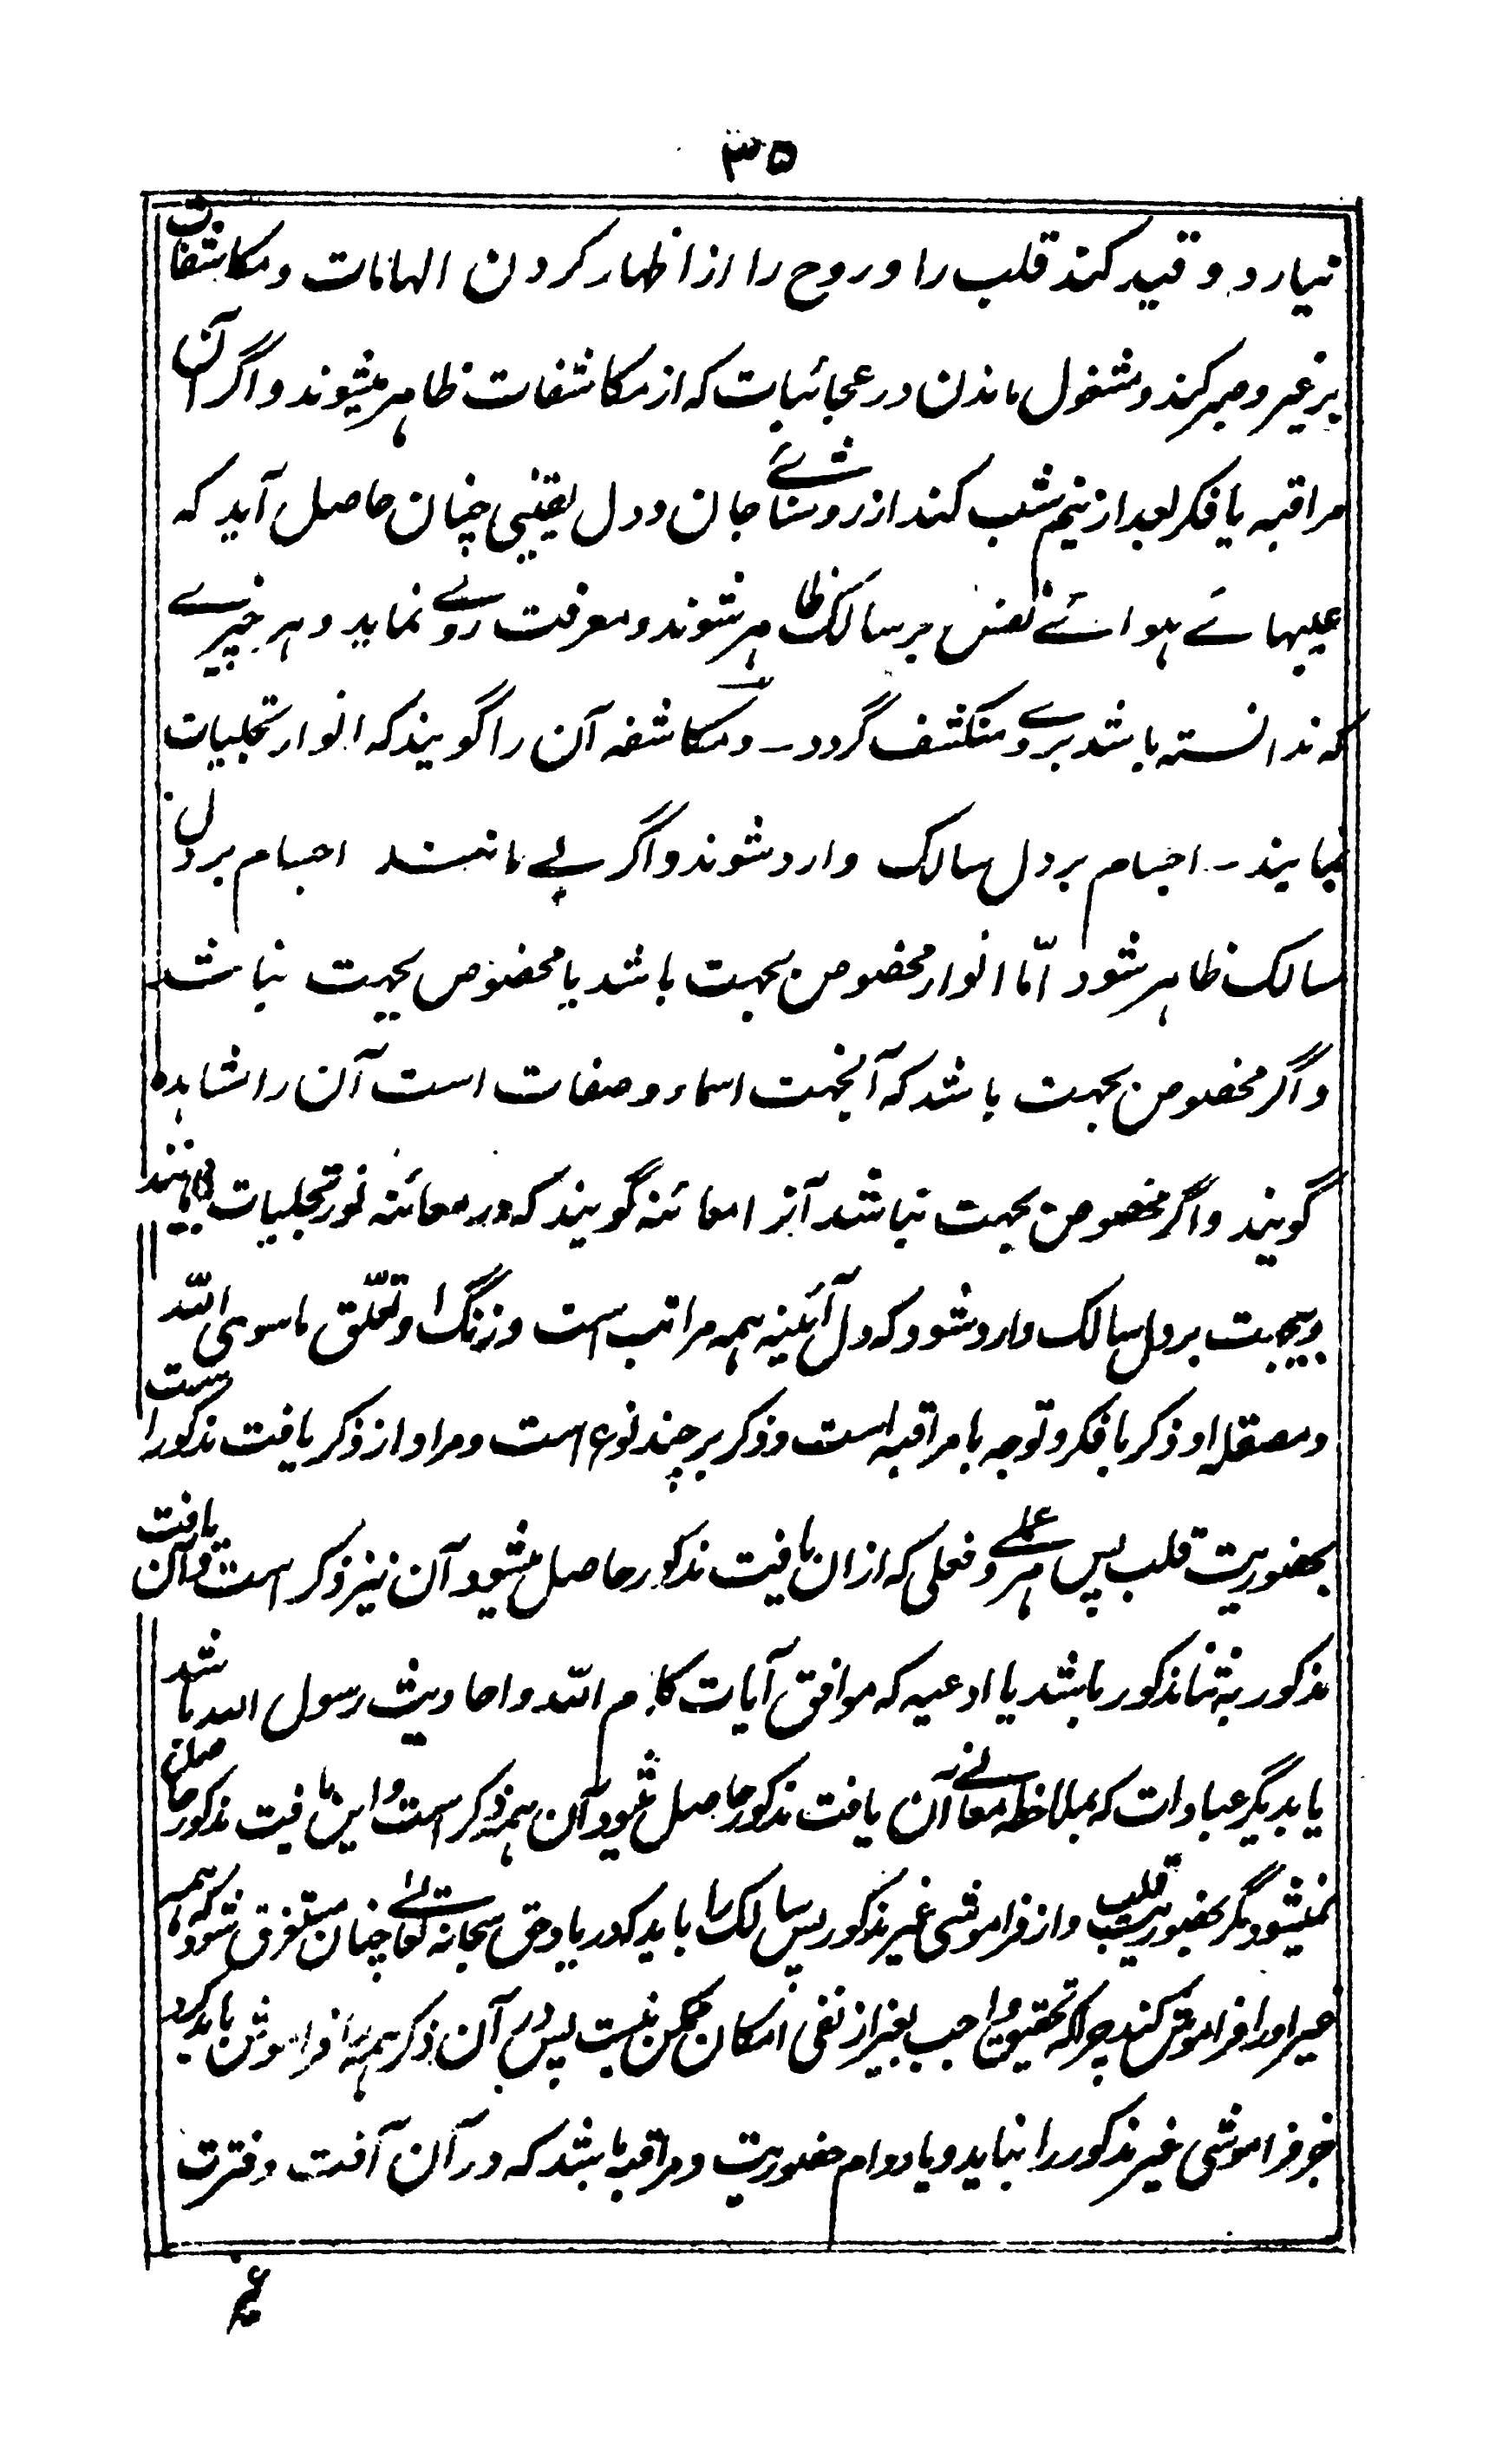 ۳۵
نیارد و قید کند قلب را و روح را از اظهار کردن الهامات و مکاشفات
بر غیر و صبر کند و مشغول ماندن در عجائبات که از مکاشفات ظاهر میشوند و اگر آن
مراقبه یا فکر بعد از نیم شب کند از روشنائے جان و دل یقینی چنان حاصل آید که
عیبهاے ہوائے نفس بر سالک ظاہر شوند و معرفت روئے نماید و ہر چیزے
که ندانسته باشد بروے منکشف گردد ۔ و مکاشفه آن را گویند که انوار تجلیات
نمایند ۔ اجسام بر دل سالک وارد شوند و اگر بے مانند اجسام بر دل
سالک ظاہر شود امّا انوار مخصوص بجهت باشد یا مخصوص بجهت نباشد
و اگر مخصوص بجهت باشد که آنجهت اسماء و صفات است آن را مشاہدہ
گویند و اگر مخصوص بجهت نباشد آنرا معائنه گویند که در معائنه نور تجلیات بیمانند
و بیجهت بر دل سالک وارد شود که دل آئینه ہمه مراتب است و زنگ او تعلّق ماسوی اللّٰه
و مصقله او ذکر با فکر و توجه با مراقبه است و ذکر بر چند نوع است و مراد از ذکر یافت مذکور است
بحضوریت قلب پس ہر عملے و فعلی که از ان یافت مذکور حاصل میشود آن نیز ذکر است و آن یافت
مذکور نه تنها مذکور باشد یا ادعیه که موافق آیات کلام اللّٰه و احادیث رسول الله باشد
یا بدیگر عبادات که بملاحظه معانے آن یافت مذکور حاصل شود آن ہمه ذکر است و این یافت مذکور حاصل
نمیشود مگر بحضوریت قلب و از فراموشی غیر مذکور پس سالک را باید که در یاد حق سبحانه تعالے چنان مستغرق شود که ہمه
غیر او را فراموش کند چرا که تحقیق واجب بغیر از نفی امکان ممکن نیست پس در آن ذکر ہمه را فراموش باید کرد
جز فراموشی غیر مذکور را نباید و یا دوام حضوریت و مراقبه باشد که در آن آفت و فترت